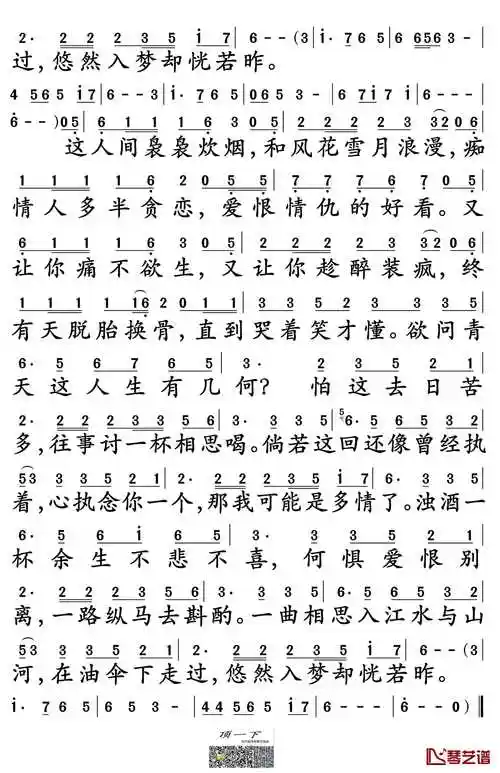 2· 2 2 2 3 5 i 7 | 6 - - (3 | i· 7 6 5 | 6 6535 6 3 - |
过,悠然入梦却恍若昨。
4 5 6 5 i 7 | 6 - - 3 | i· 7 6 5 | 0 6 5 3 - | 6 7 i 7 i | 6 - - - |
6 - -) 0 5 | 6 1 1 1 6 3 0 5 | 2 2 2 2 3 3 | 3 2 0 6 |
这人间袅袅炊烟,和风花雪月浪漫,痴
1 1 1 1 6 2 0 5 | 7 7 7 7 6 5 5 |
情人多半贪恋,爱恨情仇的好看。又
6 1 1 1 6 3 0 5 | 2 2 2 2 3 3 2 0 6 |
让你痛不欲生,又让你趁醉装疯,终
1 1 1 1 1 6 2 0 1 | 3 3 5 2 3 3 3 5 |
有天脱胎换骨,直到哭着笑才懂。欲问青
6· 5 6 7 6 5 | 3· 3 5 2 1 |
天这人生有几何?怕这去日苦
2· 2 2 2 3 3 6 5 | 3· 3 5 6· 5 6 5 3 2 1 |
多,往事讨一杯相思喝。倘若这回还像曾经执
5 3 3 3 5 2 1 | 2 2 2 2 3 5 i 7 | 6· 3 5 |
着,心执念你一个,那我可能是多情了。浊酒一
6· 5 6 i 6 5 | 3· 3 3 5 2 1 |
杯余生不悲不喜,何惧爱恨别
2· 2 2 2 3 5 6 | 3· 3 5 6· 5 6 5 3 2 1 |
离,一路纵马去斟酌。一曲相思入江水与山
5 3 3 3 5 2 1 | 2· 2 2 2 3 5 i 7 | 6 - - (3 |
河,在油伞下走过,悠然入梦却恍若昨。
i· 7 6 5 | 6 5 3 - | 4 4 5 6 5 i 7 | 6 - - - | 6 - - 0) ‖
顶一下
琴艺谱